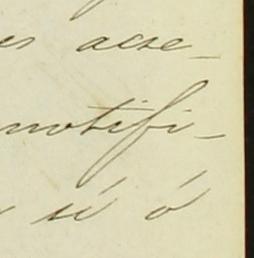 es acse-
notifi-
si ó